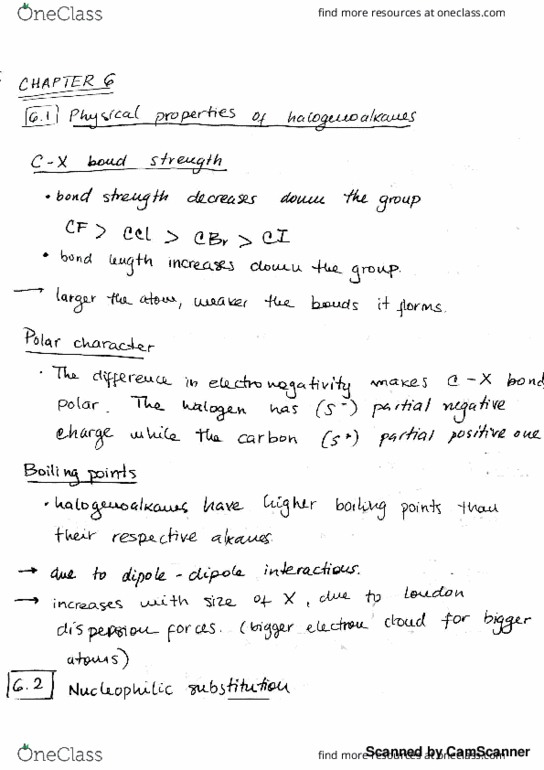 OneClass
find more resources at oneclass.com
CHAPTER 6
6.1 Physical properties of halogenoalkanes
C-X bond strength
• bond strength decreases down the group
CF > CCl > CBr > CI
• bond length increases down the group.
→ larger the atom, weaker the bonds it forms.
Polar character
• The difference in electronegativity makes C-X bond
polar. The halogen has (δ-) partial negative
charge while the carbon (δ+) partial positive one
Boiling points
• halogenoalkanes have higher boiling points than
their respective alkanes.
→ due to dipole-dipole interactions.
→ increases with size of X, due to london
dispersion forces. (bigger electron cloud for bigger
atoms)
6.2 Nucleophilic substitution
OneClass
find more resources at oneclass.com
Scanned by CamScanner